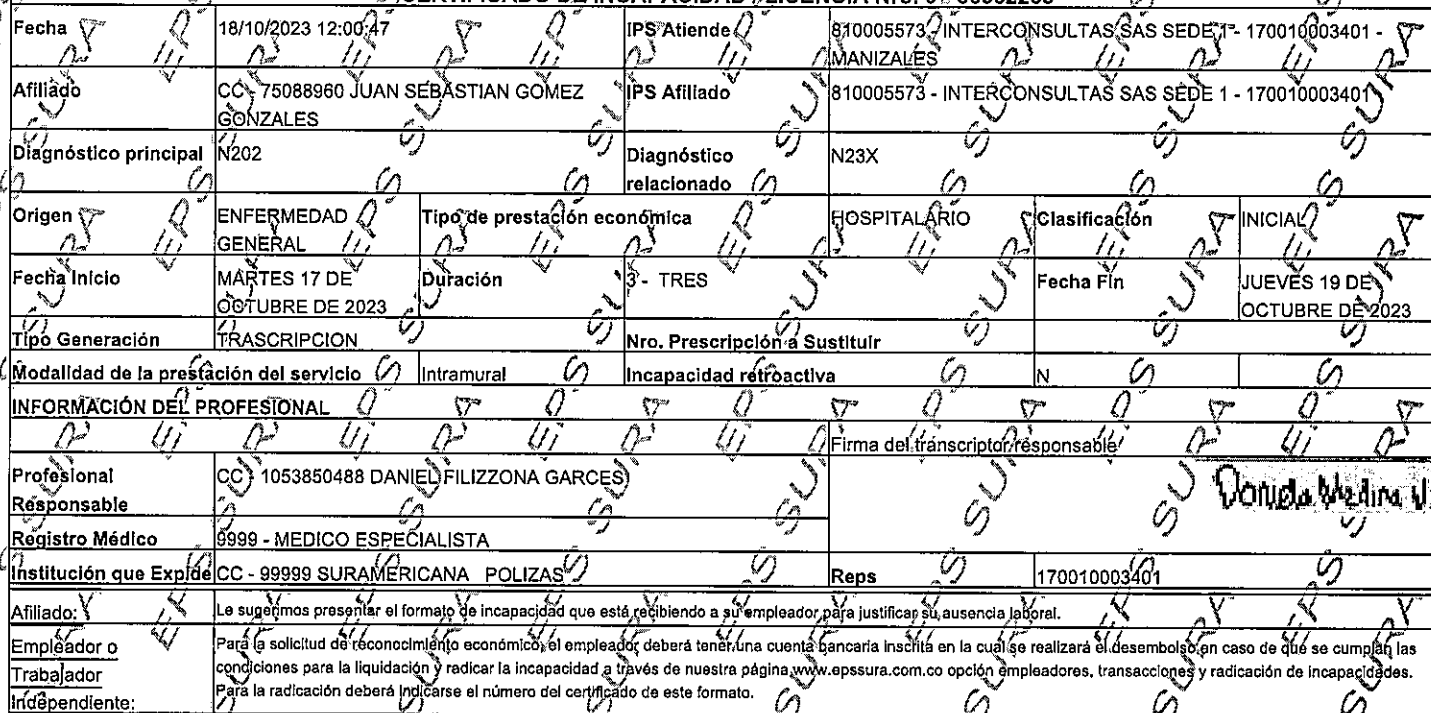 Fecha 18/10/2023 12:00:47 IPS Atiende 810005573 - INTERCONSULTAS SAS SEDE 1 - 170010003401 -
MANIZALES
Afiliado CC - 75088960 JUAN SEBASTIAN GOMEZ IPS Afiliado 810005573 - INTERCONSULTAS SAS SEDE 1 - 170010003401
GONZALES
Diagnóstico principal N202 Diagnóstico N23X
relacionado
Origen ENFERMEDAD Tipo de prestación económica HOSPITALARIO Clasificación INICIAL
GENERAL
Fecha Inicio MARTES 17 DE Duración 3 - TRES Fecha Fin JUEVES 19 DE
OCTUBRE DE 2023 OCTUBRE DE 2023
Tipo Generación TRASCRIPCION Nro. Prescripción a Sustituir
Modalidad de la prestación del servicio Intramural Incapacidad retroactiva N
INFORMACIÓN DEL PROFESIONAL
Firma del transcriptor responsable
Profesional CC - 1053850488 DANIEL FILIZZONA GARCES
Responsable
Registro Médico 9999 - MEDICO ESPECIALISTA
Institución que Expide CC - 99999 SURAMERICANA POLIZAS Reps 170010003401
Afiliado: Le sugerimos presentar el formato de incapacidad que está recibiendo a su empleador para justificar su ausencia laboral.
Empleador o Para la solicitud de reconocimiento económico, el empleador deberá tener una cuenta bancaria inscrita en la cual se realizará el desembolso en caso de que se cumplan las
Trabajador condiciones para la liquidación y radicar la incapacidad a través de nuestra página www.epssura.com.co opción empleadores, transacciones y radicación de incapacidades.
Independiente: Para la radicación deberá indicarse el número del certificado de este formato.
EPS SURA